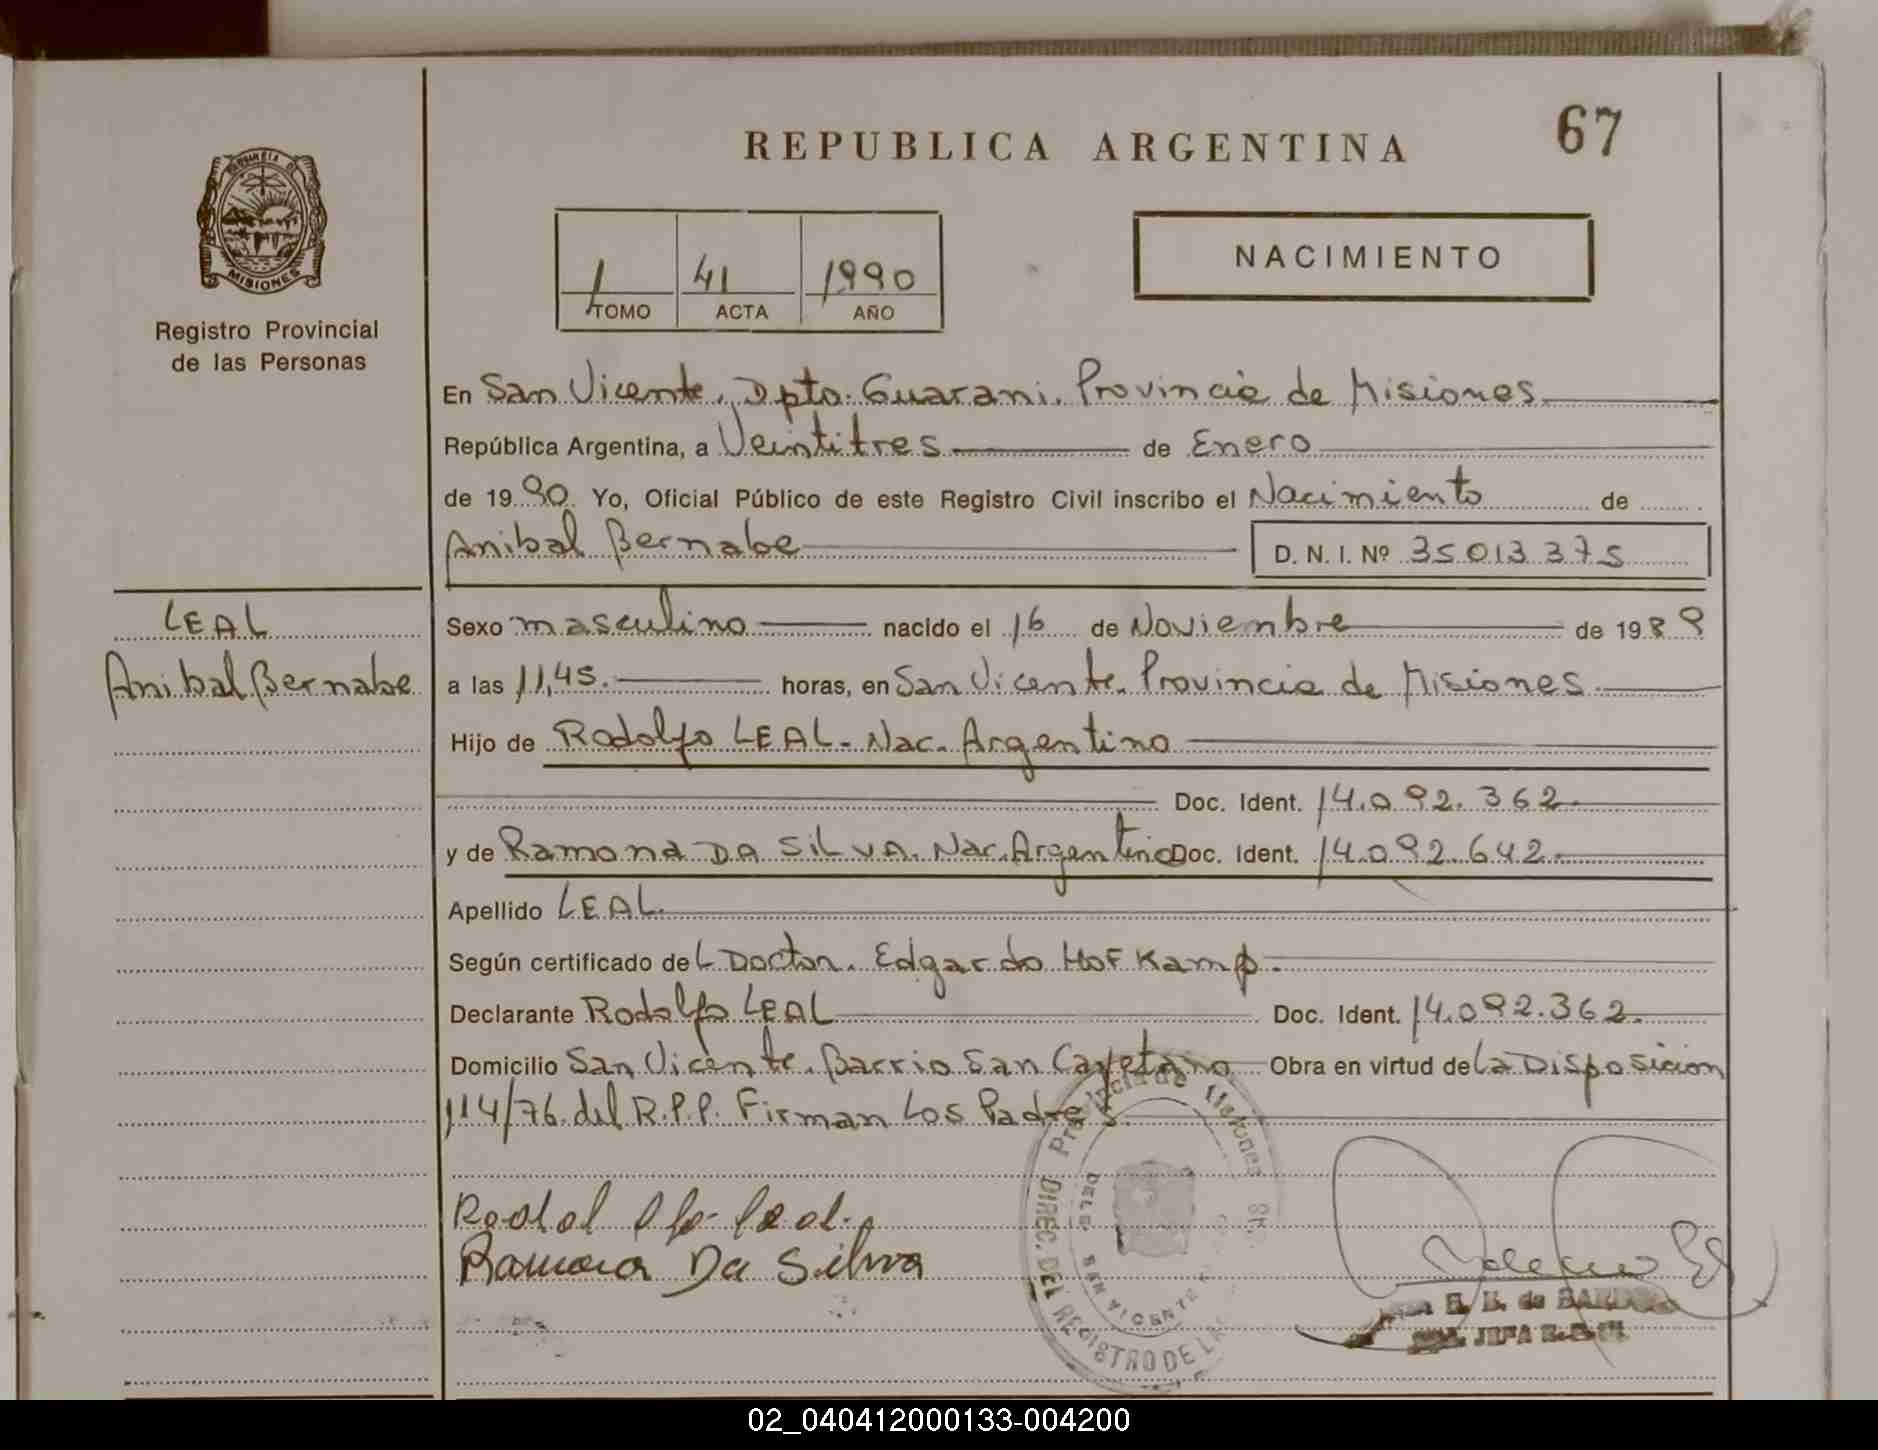 67
REPUBLICA ARGENTINA
PROVINCIA D
MISIONES
Registro Provincial
de las Personas
1 41 1990
TOMO ACTA AÑO
NACIMIENTO
En San Vicente, Dpto. Guarani. Provincia de Misiones
República Argentina, a Veintitres de Enero
de 1990. Yo, Oficial Público de este Registro Civil inscribo el Nacimiento de
Anibal Bernabe D. N. I. Nº 35013375
LEAL
Anibal Bernabe
Sexo masculino nacido el 16 de Noviembre de 1989
a las 11,45. horas, en San Vicente. Provincia de Misiones.
Hijo de Rodolfo LEAL - Nac. Argentino
Doc. Ident. 14.092.362.
y de Ramona DA SILVA. Nac. Argentino Doc. Ident. 14.092.642.
Apellido LEAL.
Según certificado del Doctor. Edgardo Hof Kamp.
Declarante Rodolfo LEAL Doc. Ident. 14.092.362.
Domicilio San Vicente. Barrio San Cayetano Obra en virtud de La Disposicion
114/76. del R.P.P. Firman Los Padres.
Provincia de Misiones
DIREC. DEL REGISTRO DE LA
DELE. SAN VICENTE
Ramona Da Silva
JEFA
02_040412000133-004200